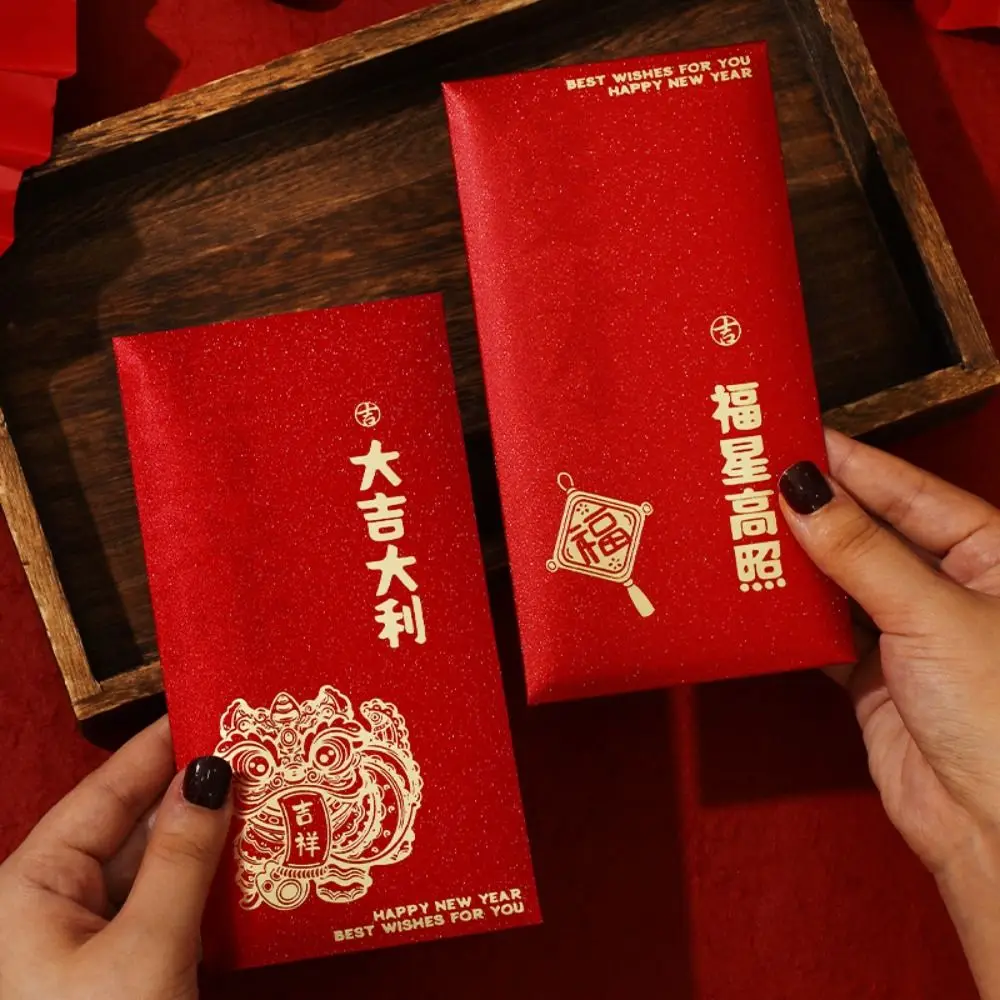 吉
大吉大利
吉祥
HAPPY NEW YEAR
BEST WISHES FOR YOU
BEST WISHES FOR YOU
HAPPY NEW YEAR
吉
福星高照
福